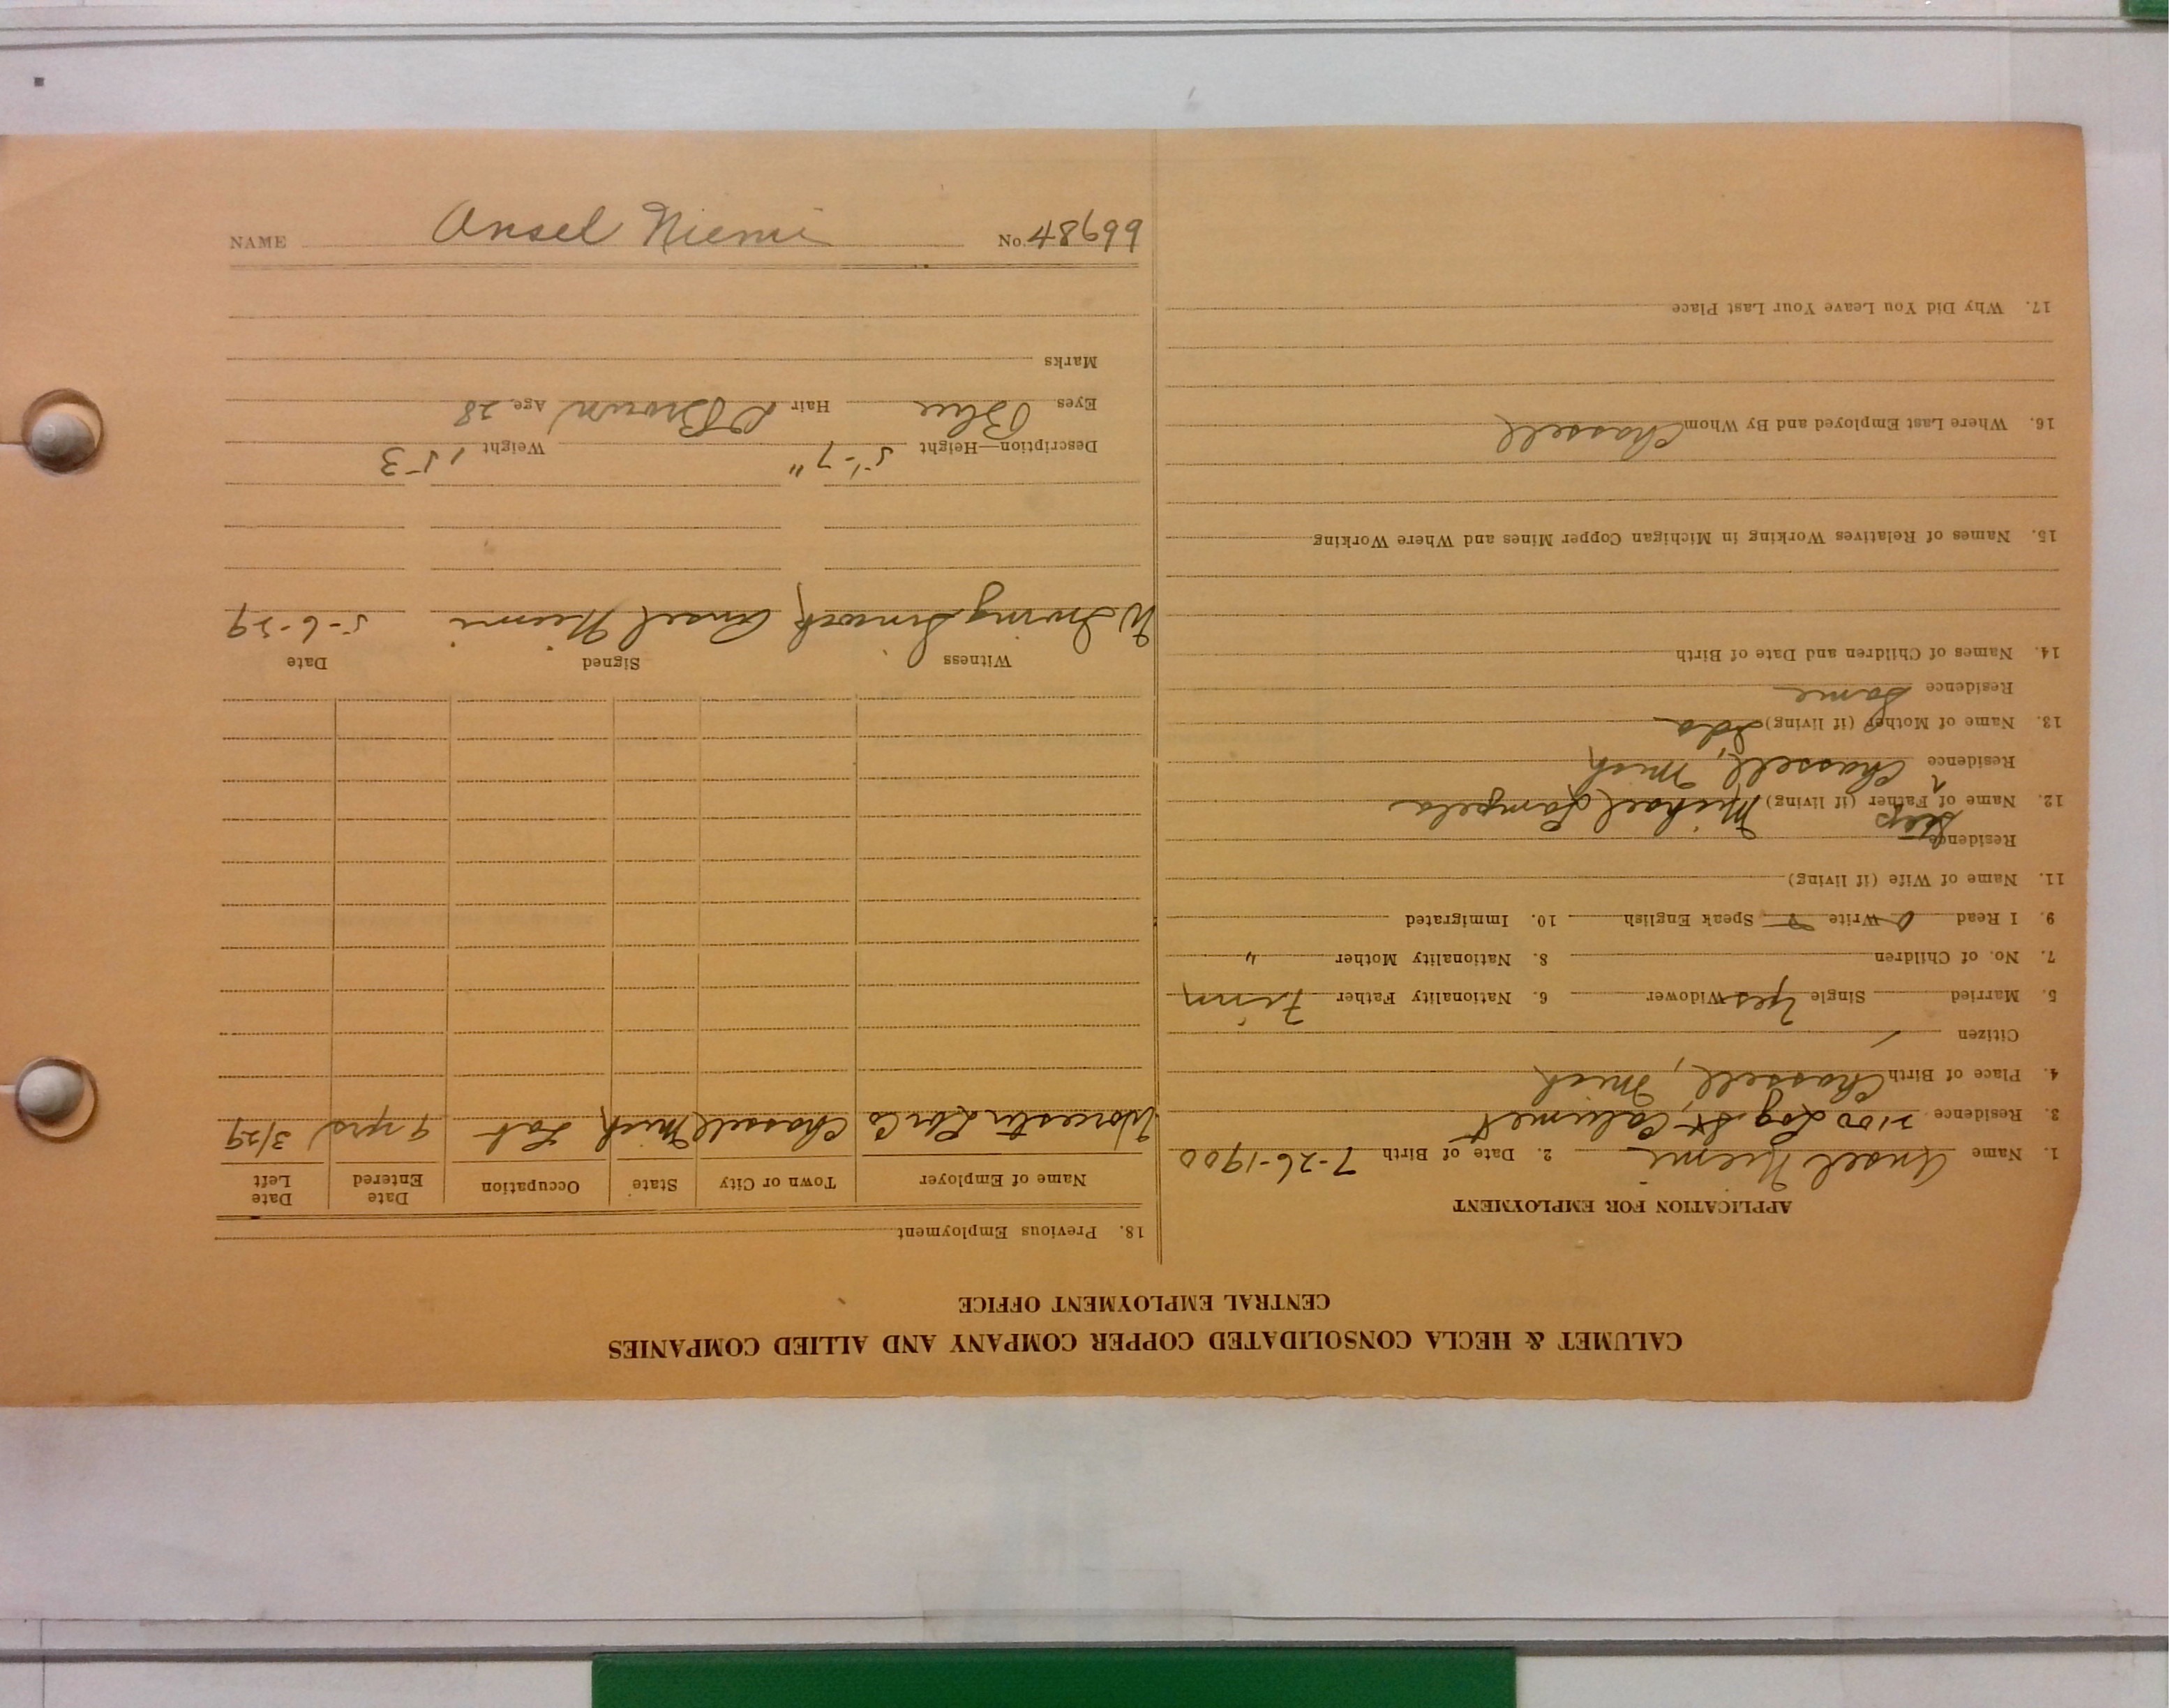 CALUMET & HECLA CONSOLIDATED COPPER COMPANY AND ALLIED COMPANIES
CENTRAL EMPLOYMENT OFFICE
APPLICATION FOR EMPLOYMENT
1. Name Ansel Niemi 2. Date of Birth 7-26-1900
3. Residence Log St Calumet
4. Place of Birth Chassell, Mich
Citizen
5. Married Single Yes Widower 6. Nationality Father Finn
7. No. of Children 8. Nationality Mother "
9. I Read Write Speak English 10. Immigrated
11. Name of Wife (if living)
Residence
12. Name of Step Father (if living) Michael Lampela
Residence Chassell, Mich
13. Name of Mother (if living) Ida
Residence Same
14. Names of Children and Date of Birth
15. Names of Relatives Working in Michigan Copper Mines and Where Working
16. Where Last Employed and By Whom Chassell
17. Why Did You Leave Your Last Place
18. Previous Employment
Name of Employer Town or City State Occupation Date Entered Date Left
Worcester Lbr Co Chassell Mich Lab 9 yrs 3/29
Witness Signed Date
W. Irving Ansel Niemi 5-6-29
Description—Height 5'-7" Weight 153
Eyes Blue Hair D Brown Age 28
Marks
NAME Ansel Niemi No. 48699